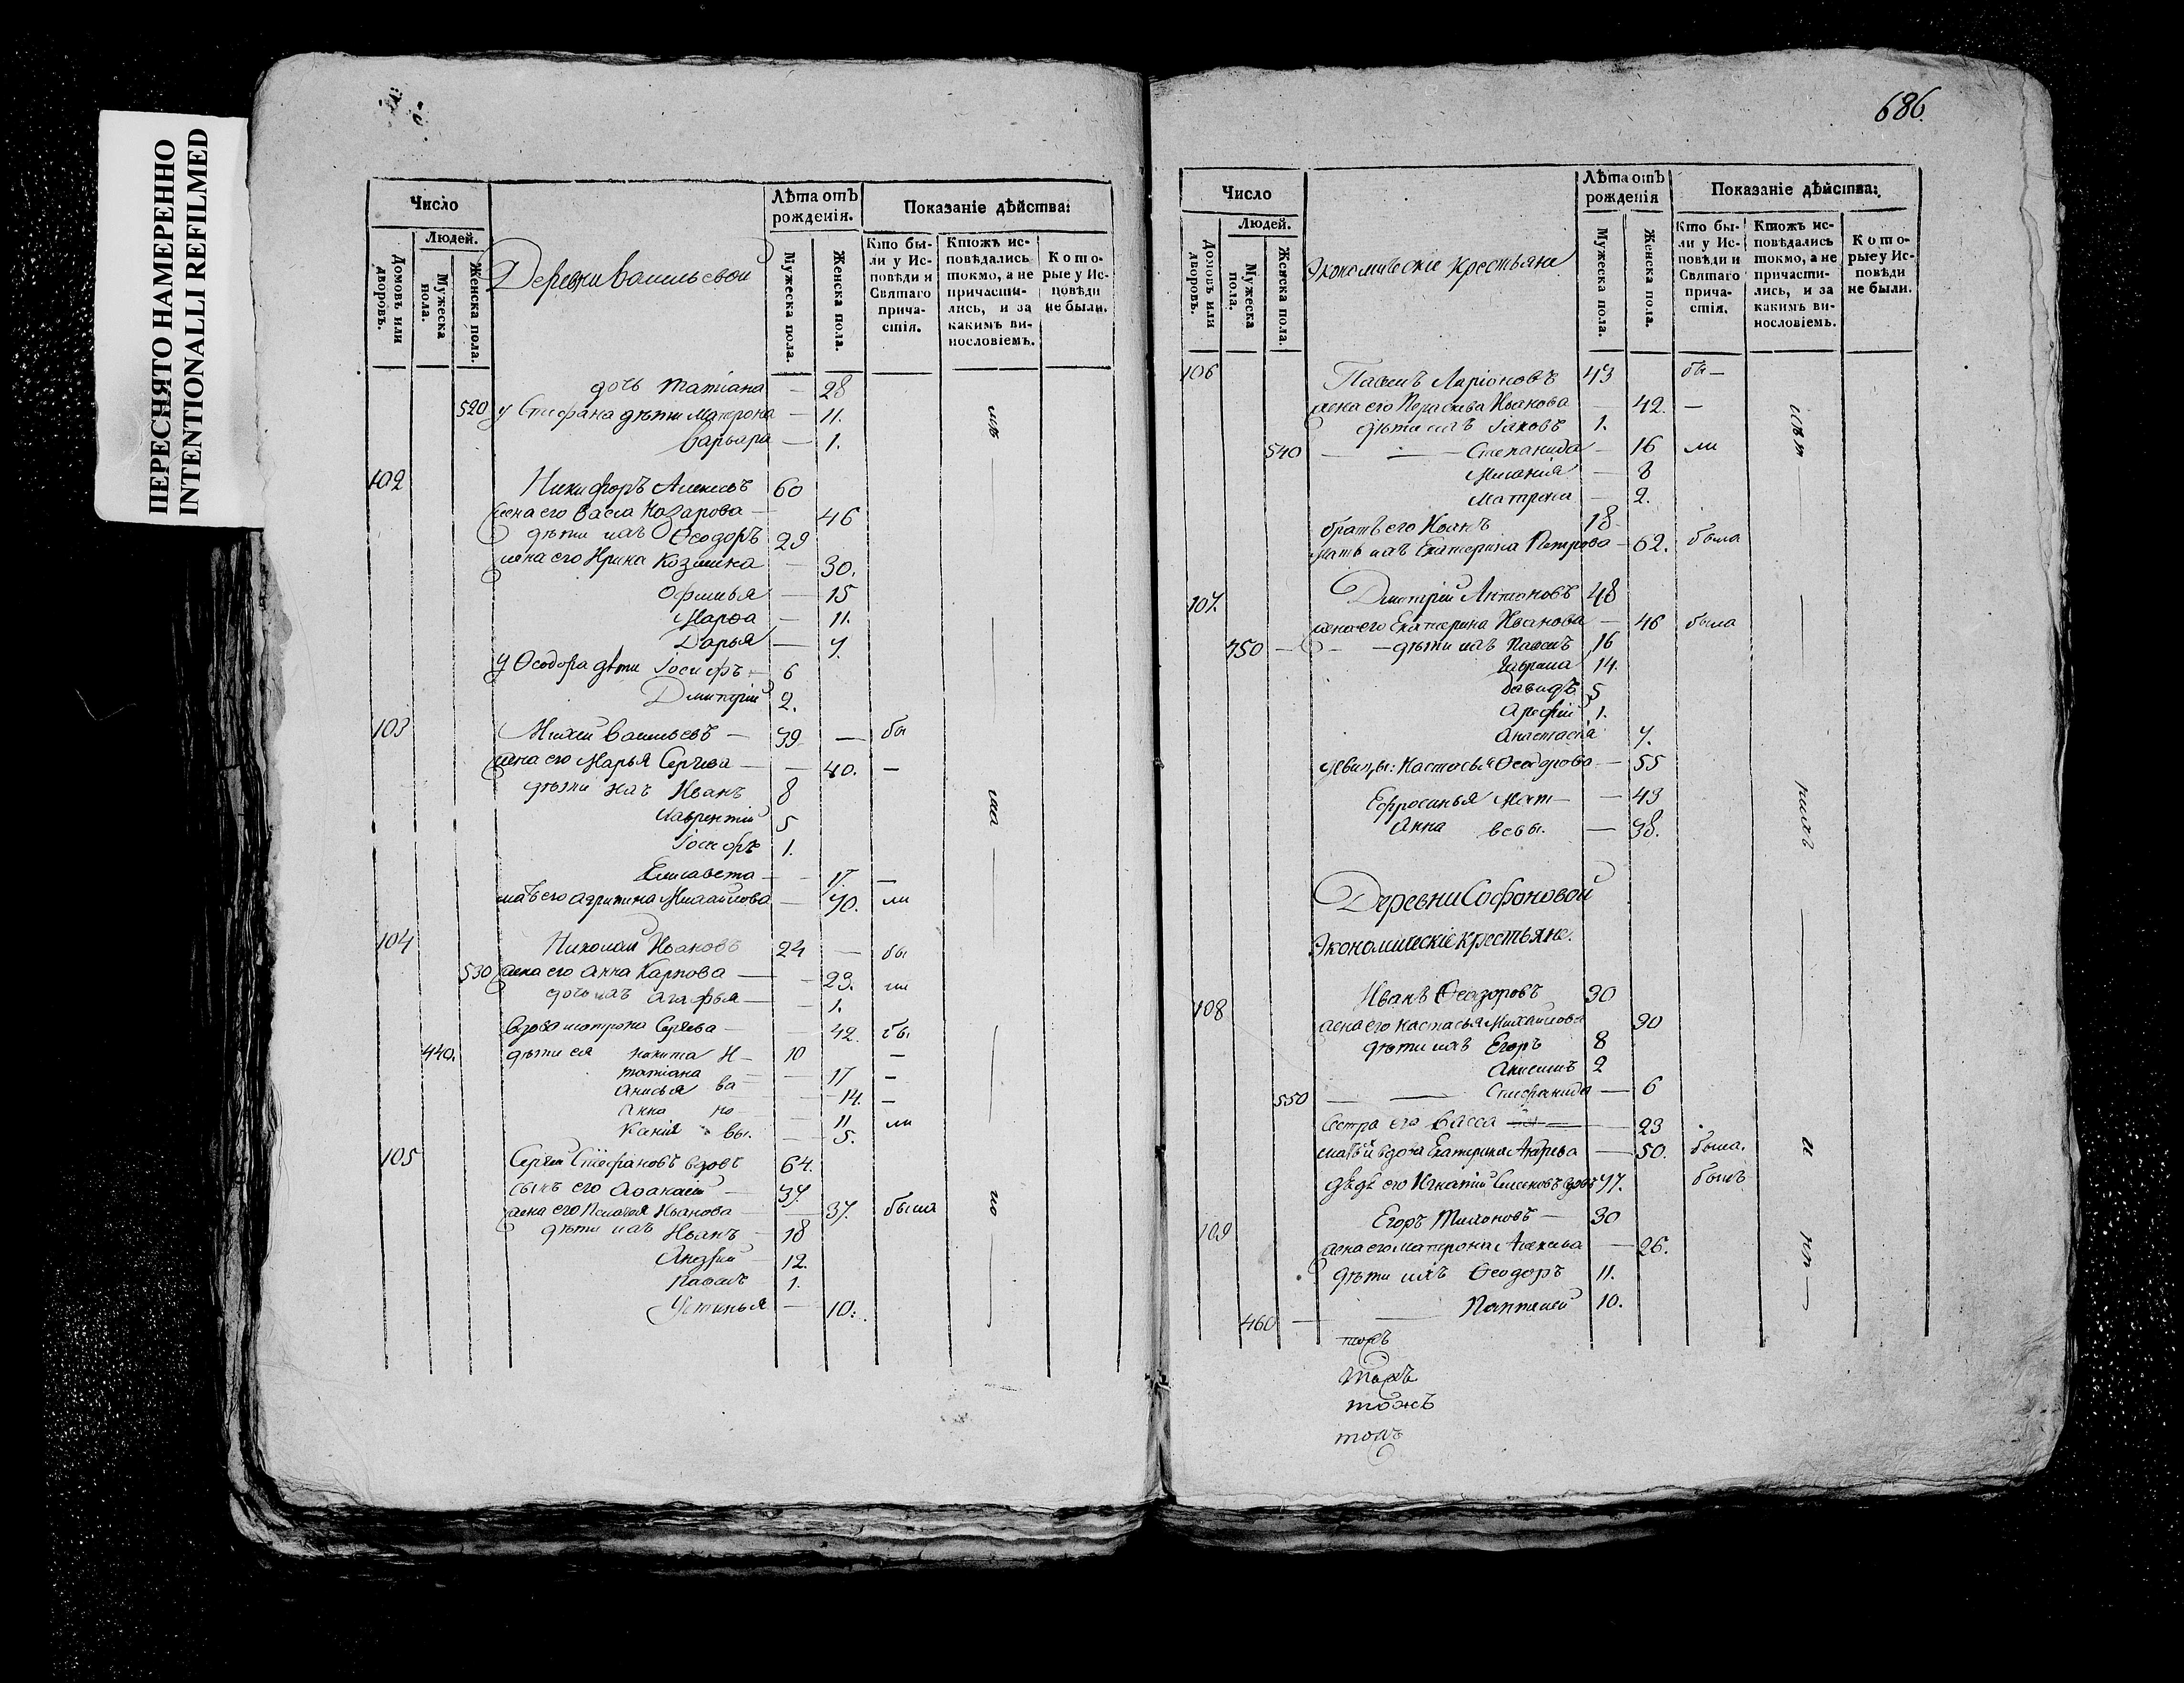 ПЕРЕСНЯТО НАМЕРЕННО
INTENTIONALLI REFILMED
Число
Людей.
Домовъ или дворовъ.
Мужеска пола.
Женска пола.
Деревни Васильевой
Лѣта отъ рожденія.
Мужеска пола.
Женска пола.
Показаніе дѣйства:
Кто были у Исповѣди и Святаго причастія.
Ктожъ исповѣдались токмо, а не причастились, и за какимъ винословіемъ.
Которые у Исповѣди не были.
дочь Татіана — 28
520 у Стефана дѣти Матрона — 11.
Варвара — 1.
102 Никифоръ Алексѣевъ 60
жена его Васса Назарова — 46
дѣти ихъ Ѳеодоръ 29
жена его Ирина Козмина — 30.
Офимья — 15
Марѳа — 11.
Дарья — 7.
у Ѳеодора дѣти Іосифъ — 6
Дмитрій 2.
103 Васильевъ — 39 — бы
жена его Марья Сергѣева — 40. —
дѣти ихъ Иванъ 8
Лаврентій 5
Іосифъ 1.
Елисавета — 17. —
мать его Агрипина Михайлова — 70. ли
104 Николай Ивановъ 24 — бы
530 жена его Анна Карпова — 23. ли
дочь ихъ Агафья — 1.
вдова Матрона Сергѣева — 42. бы
440. дѣти ея Никита И— 10 —
Татіана — 17 —
Анисья ва — 14. —
Анна но — 11 ли
Ксенія вы. — 5.
105 Сергѣй Стефановъ вдовъ 64.
сынъ его Аѳанасей — 37.
жена его Пелагея Иванова — 37. была
дѣти ихъ Иванъ — 18
Андрей — 12.
Павелъ 1.
Устинья — 10.
686.
Число
Людей.
Домовъ или дворовъ.
Мужеска пола.
Женска пола.
Экономическіе крестьяне
Лѣта отъ рожденія
Мужеска пола.
Женска пола.
Показаніе дѣйства:
Кто были у Исповѣди и Святаго причастія.
Ктожъ исповѣдались токмо, а не причастились, и за какимъ винословіемъ.
Которые у Исповѣди не были.
106 Павелъ Ларіоновъ 43 бы—
жена его Параскева Иванова — 42. —
дѣти ихъ Іаковъ 1.
540 — — Степанида — 16 ли
Меланія — 8
Матрона — 2.
братъ его Иванъ 18
мать ихъ Екатерина Петрова — 62. была
107. Дмитрій Антоновъ 48
жена его Екатерина Иванова — 46 была
450 — — дѣти ихъ Павелъ 16
Гаврила 14.
Давидъ 5
Арефій 1.
Анастасія 7.
девицы: Настасья Ѳеодорова — 55
Ефросинья Мат— — 43
Анна вевы. — 38.
Деревни Софоновой
Экономическіе крестьяне.
108 Иванъ Ѳеодоровъ 30
жена его Настасья Михайлова 30
дѣти ихъ Егоръ 8
Анисимъ 2
550 — — Стефанида — 6
сестра его Васса — 23
мать вдова Екатерина Андреева — 50. была.
дѣдъ его Игнатій Семеновъ вдовъ 77. былъ
109 Егоръ Тихоновъ — 30
жена его Матрона Алексѣева — 26.
дѣти ихъ Ѳеодоръ 11.
460 — — Пантелей 10.
тожъ
тожъ
тожъ
тожъ